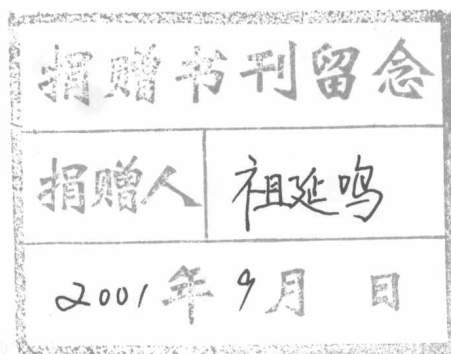 捐赠书刊留念
捐赠人 祖延鸣
2001年9月 日